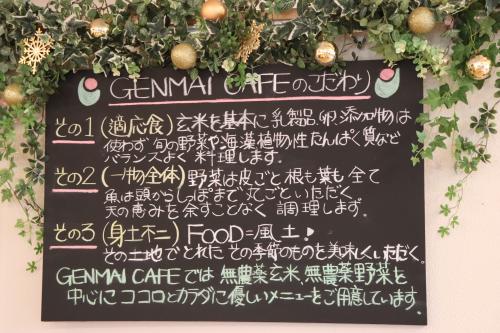 GENMAI CAFEのこだわり
その1(適応食)玄米を基本に乳製品、卵、添加物は
使わず旬の野菜や海藻植物性たんぱく質など
バランスよく料理します。
その2(一物全体)野菜は皮ごと根も葉も全て
魚は頭からしっぽまで丸ごといただく
天の恵みを余すことなく調理します。
その3(身土不二)FOOD=風土!
その土地でとれたその季節のものを美味しくいただく。
GENMAI CAFEでは無農薬玄米、無農薬野菜を
中心にココロとカラダに優しいメニューをご用意しています。